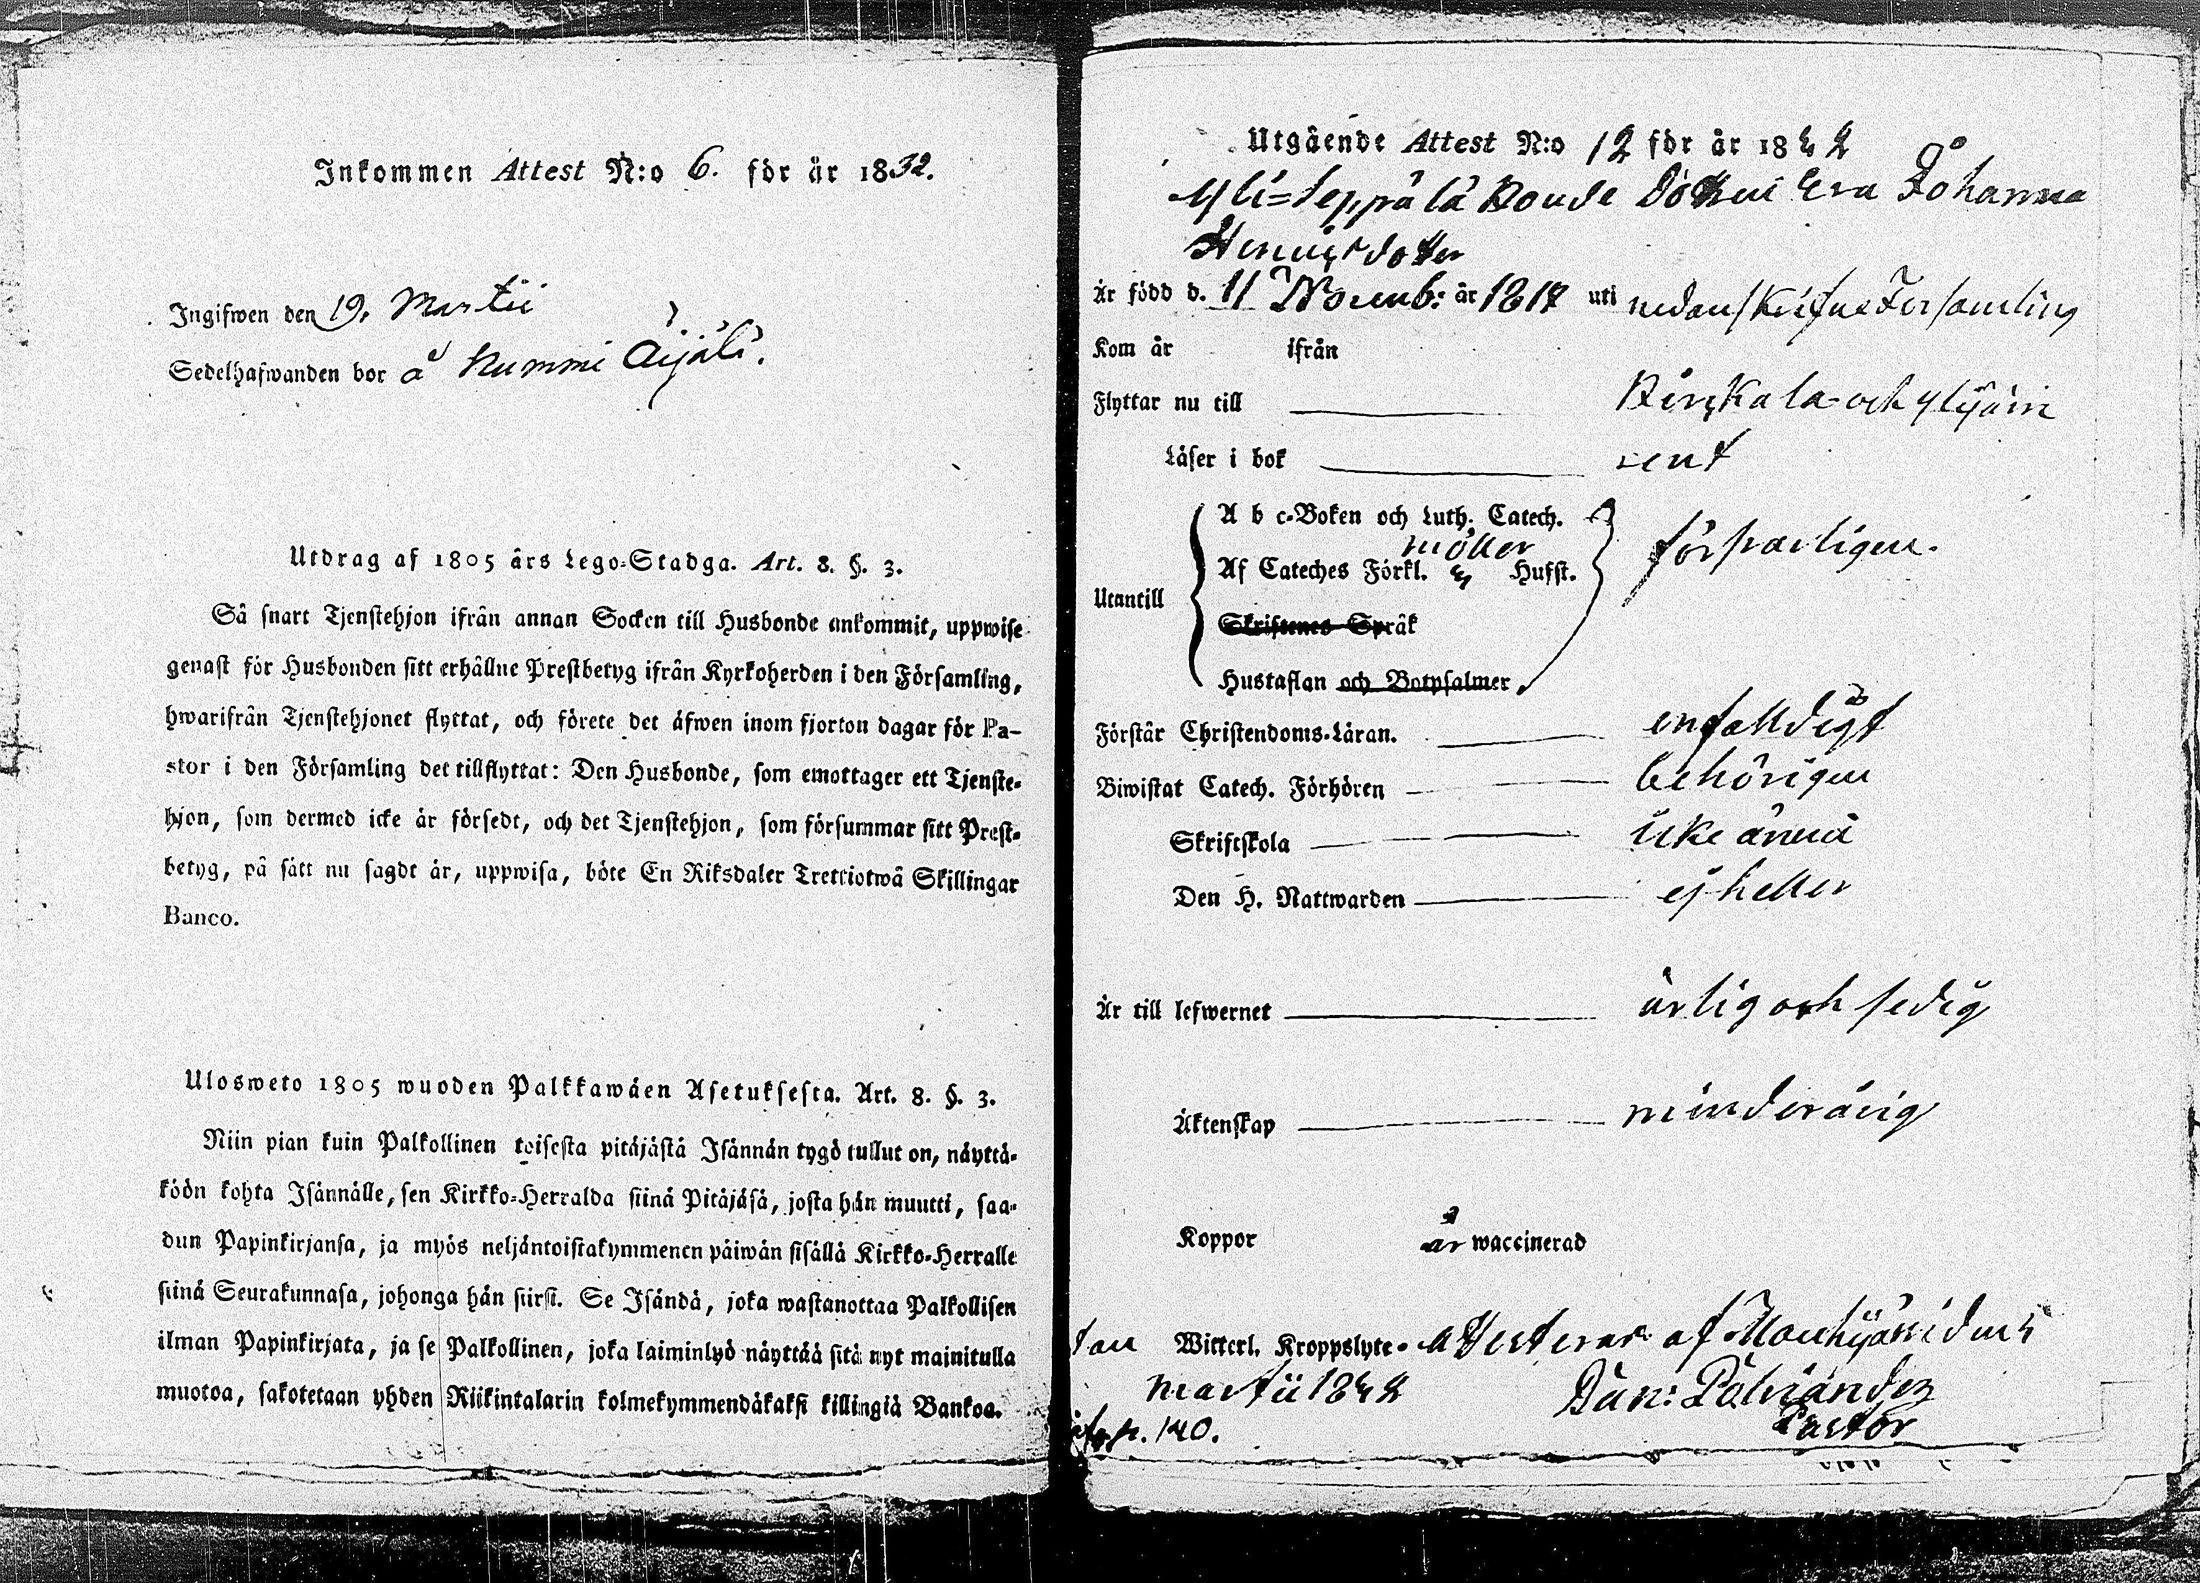 Inkommen Attest N:o 6. för år 1832.
Ingifwen den 19. Martii
Sedelhafwanden bor å Kummi Äijälä.
Utdrag af 1805 års Lego-Stadga. Art. 8. §. 3.
Så snart Tjenstehjon ifrån annan Socken till Husbonde ankommit, uppwise
genast för Husbonden sitt erhållne Prestbetyg ifrån Kyrkoherden i den Församling,
hwarifrån Tjenstehjonet flyttat, och förete det äfwen inom fjorton dagar för Pa-
stor i den Församling det tillflyttat: Den Husbonde, som emottager ett Tjenste-
hjon, som dermed icke är försedt, och det Tjenstehjon, som försummar sitt Prest-
betyg, på sätt nu sagdt är, uppwisa, böte En Riksdaler Trettiotwå Skillingar
Banco.
Ulosweto 1805 wuoden Palkkawäen Asetuksesta. Art. 8. §. 3.
Niin pian kuin Palkollinen toisesta pitäjästä Isännän tygö tullut on, näyttä-
köön kohta Isännälle, sen Kirkko-Herralda siinä Pitäjäsä, josta hän muutti, saa-
dun Papinkirjansa, ja myös neljäntoistakymmenen päiwän sisällä Kirkko-Herralle
siinä Seurakunnasa, johonga hän siirsi. Se Isändä, joka wastanottaa Palkollisen
ilman Papinkirjata, ja se Palkollinen, joka laiminlyö näyttää sitä nyt mainitulla
muotoa, sakotetaan yhden Riikintalarin kolmekymmendäkaksi killingiä Bankoa.
Utgående Attest N:o 12 för år 1832
Yli=Seppälä Bonde Dottren Eva Johanna
Henricsdotter
Är född d. 11 Novemb: år 1817 uti nedanskrifne Församling
Kom år ifrån
Flyttar nu till Birkkala och Ylijäri
Läser i bok rent
A b c-Boken och Luth. Catech.
möller
Af Cateches Förkl. Husst. försvarligen.
Utantill
Skriftenes Språk
Hustaflan och Botpsalmer
Förstår Christendoms-Läran. enfalldigt
Biwistat Catech. Förhören behörigen
Skriftskola icke ännu
Den H. Nattwarden ej heller
Är till lefwernet ärlig och sedig
Äktenskap minderårig
Koppor är waccinerad
tan Witterl. Kroppslyte. Attesterar af Mouhijärvi den 5
Martii 1832 Dan: Pälviändez
p. 140. Pastor